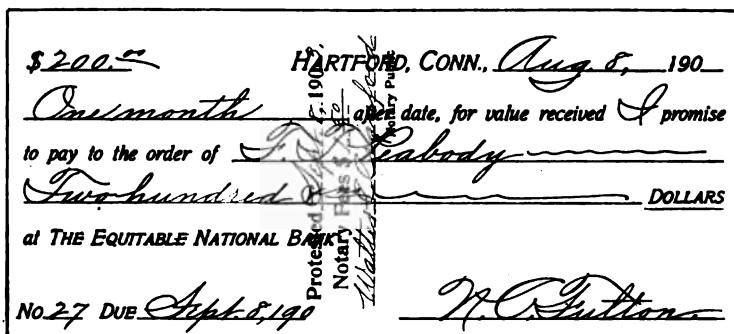 $200.00 HARTFORD, CONN., Aug. 8, 190
One month after date, for value received I promise
to pay to the order of Peabody
Two hundred DOLLARS
at THE EQUITABLE NATIONAL BANK
No 27 DUE Sept. 8, 190 N. C. Fulton.
Protested 190
Notary Fees $
Notary Public